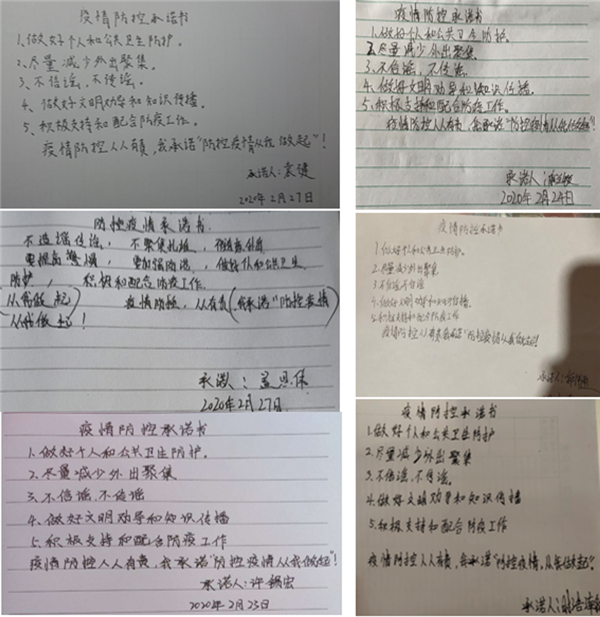 疫情防控承诺书
1、做好个人和公共卫生防护。
2、尽量减少外出聚集。
3、不信谣,不传谣。
4、做好文明劝导和知识传播。
5、积极支持和配合防疫工作。
疫情防控人人有责,我承诺"防控疫情从我做起"!
承诺人:袁健
2020年2月27日
疫情防控承诺书
1、做好个人和公共卫生防护。
2、尽量减少外出聚集。
3、不信谣,不传谣。
4、做好文明劝导和知识传播。
5、积极支持和配合防疫工作。
疫情防控人人有责,我承诺"防控疫情从我做起"!
承诺人:
2020年2月24日
防控疫情承诺书
不造谣传谣,不聚集扎堆,
更提高警惕,更加强防范,做好个人和公共卫生
防护,积极和配合防疫工作
疫情防控,人人有责(我承诺"防控疫情
从我做起!
承诺人:孟思保
2020年2月27日.
疫情防控承诺书
1、做好个人和公共卫生防护。
2、尽量减少外出聚集
3、不信谣不传谣
4、做好文明劝导和知识传播
5、积极支持和配合防疫工作
疫情防控人人有责我承诺"防控疫情从我做起!
承诺人:
疫情防控承诺书
1、做好个人和公共卫生防护。
2、尽量减少外出聚集
3、不信谣、不传谣
4、做好文明劝导和知识传播
5、积极支持和配合防疫工作
疫情防控人人有责,我承诺"防控疫情从我做起"!
承诺人:许锡宏
2020年2月23日
疫情防控承诺书
1、做好个人和公共卫生防护
2、尽量减少外出聚集
3、不信谣,不传谣。
4、做好文明劝导和知识传播
5、积极支持和配合防疫工作
疫情防控人人有责,我承诺"防控疫情,从我做起"。
承诺人: